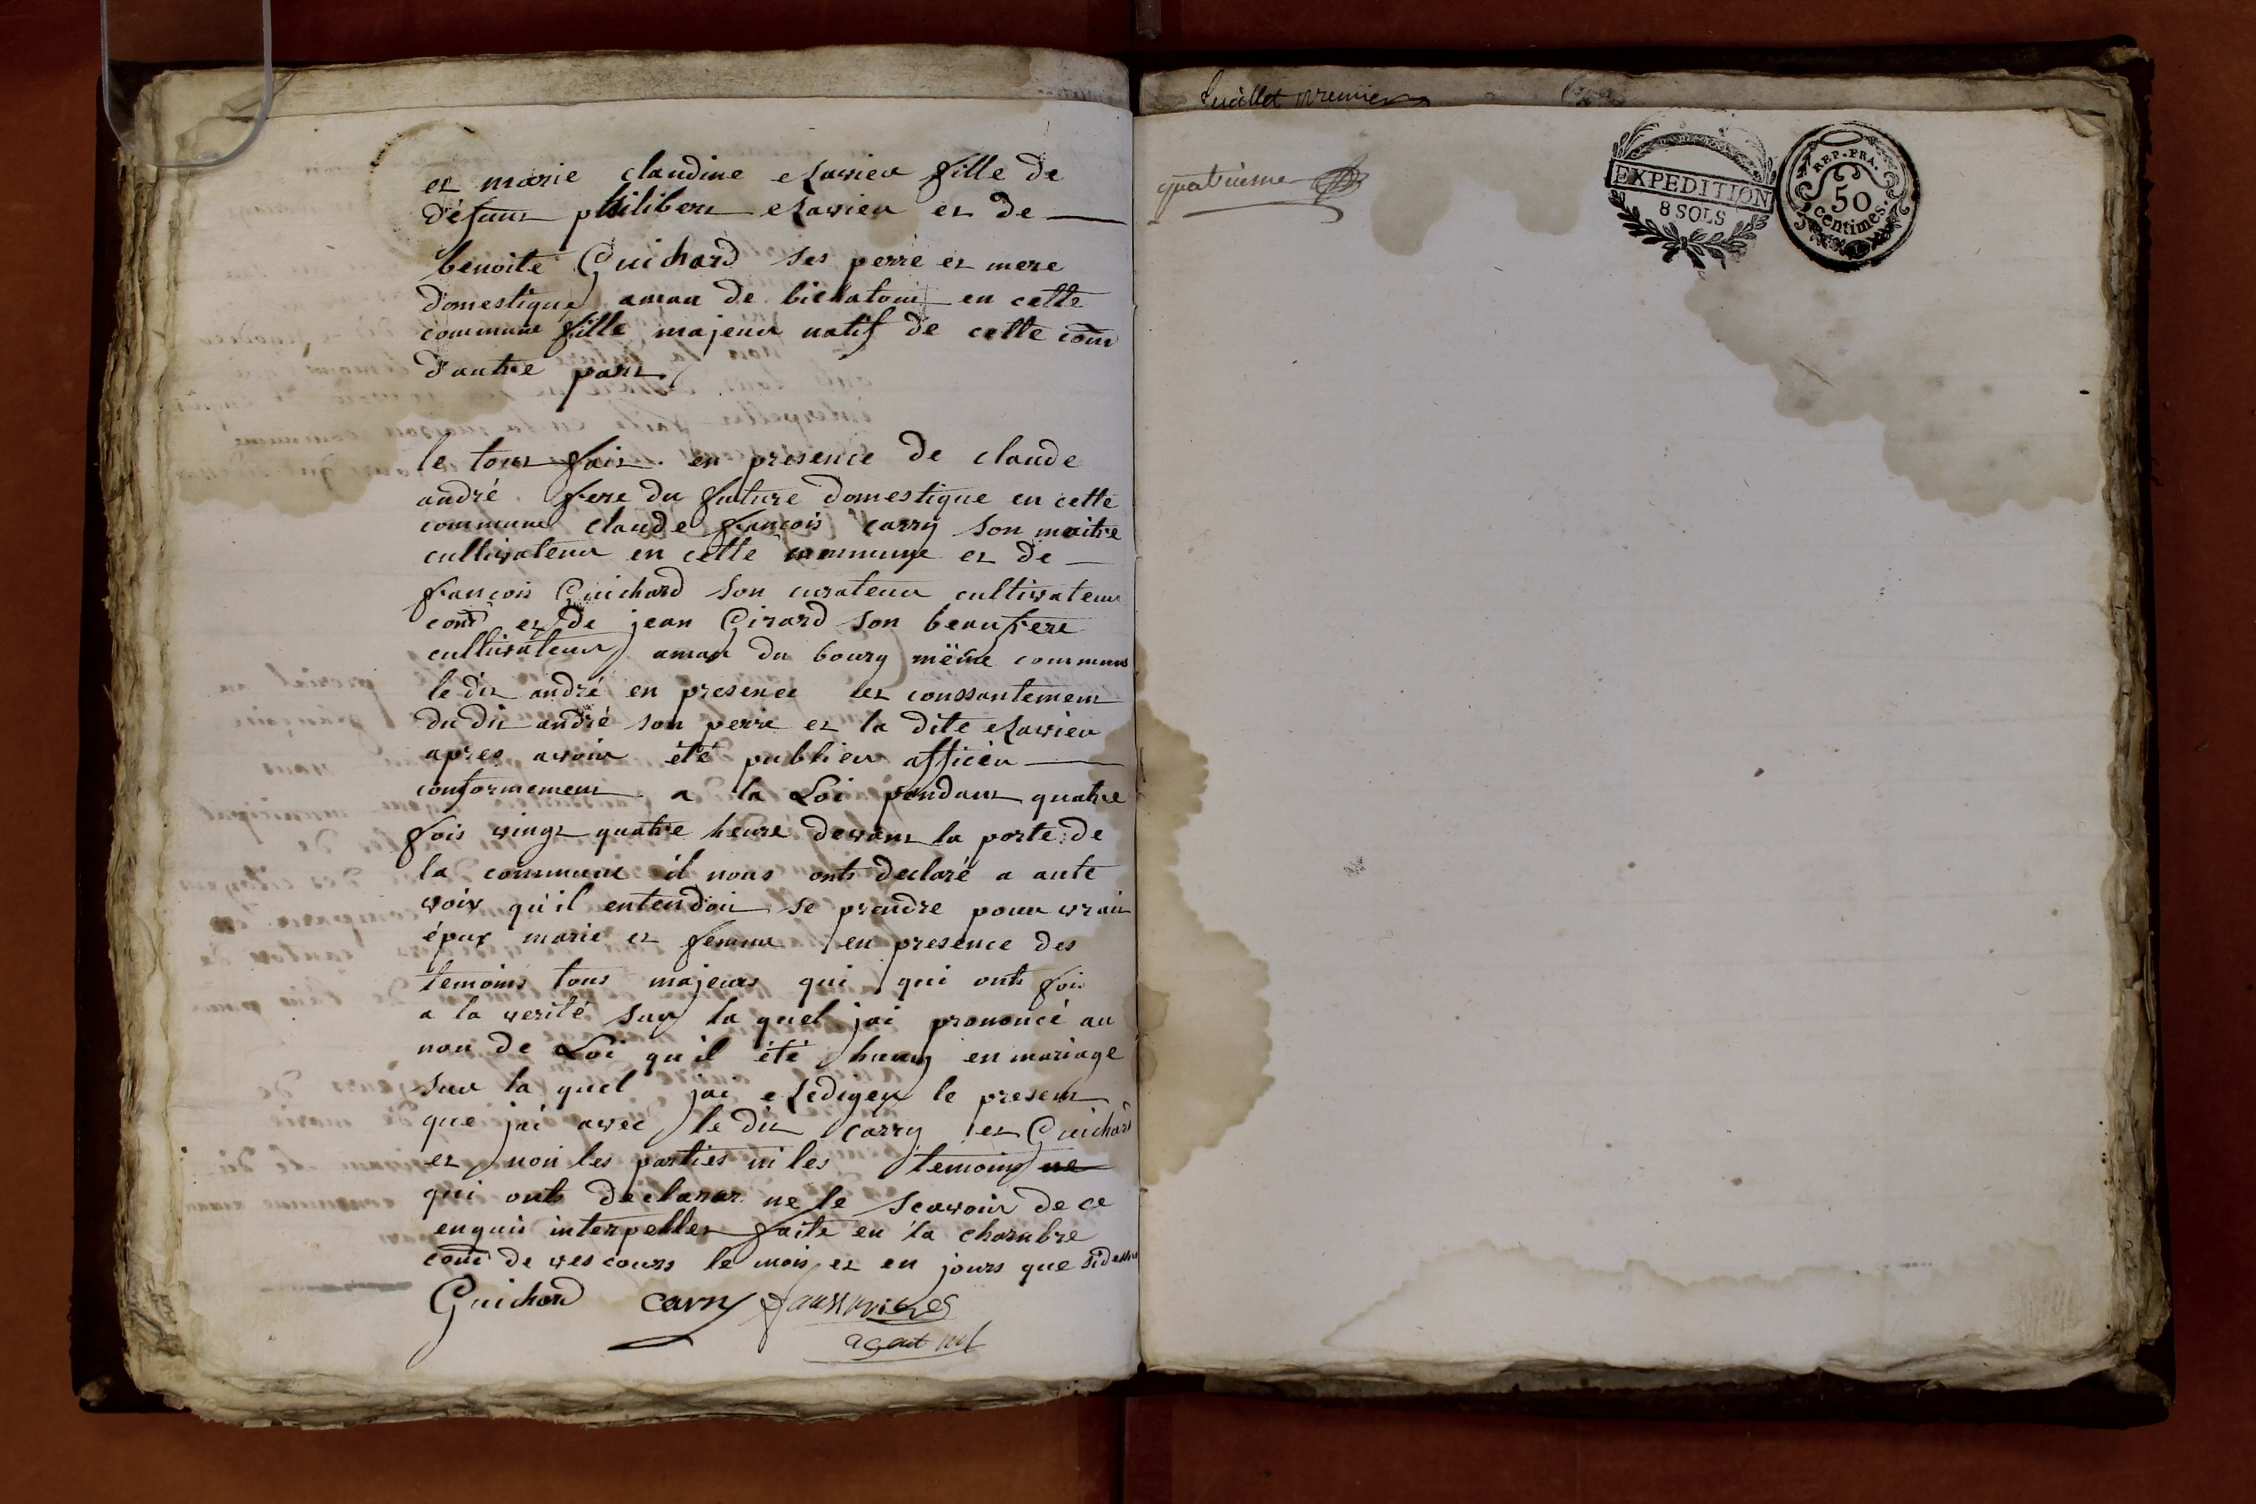 et marie claudine Ravier fille de
défunt philibert Ravier et de
benoite Guichard ses perre et mere
domestique amau de bichatoui en cette
commune fille majeur natif de cette com
d'autre part
le tout fait en presence de claude
andré fere du future domestique en cette
commune claude françois carry son maitre
cultivateur en cette commune et de
françois Guichard son curateur cultivateur
com et de jean Girard son beaufrere
cultivateur amau du bourg même commune
le dit andré en presence et conssantement
du dit andré son perre et la dite Ravier
apres avoir été publier afficer
conformement a la Loi pendant quatre
fois vingt quatre heure devant la porte de
la commune il nous onts declaré a aute
voix qu'il entendoit se prendre pour vrais
époux marie et femme en presence des
temoins tous majeurs qui qui onts foi
a la verité sur la quel jai prononcé au
non de Loi qu'il été huny en mariage
sur la quel jai Rediger le present
que jai avec le dit carry et Guichard
et non les parties ni les temoins ne
qui onts declarer ne le scavoir de ce
enquis interpeller faite en la chambre
com de vescours le mois et en jours que sidessu
Guichard carry
agent
feuillet premier
quatrieme
EXPEDITION
8 SOLS
REP. FRA.
50
centimes.